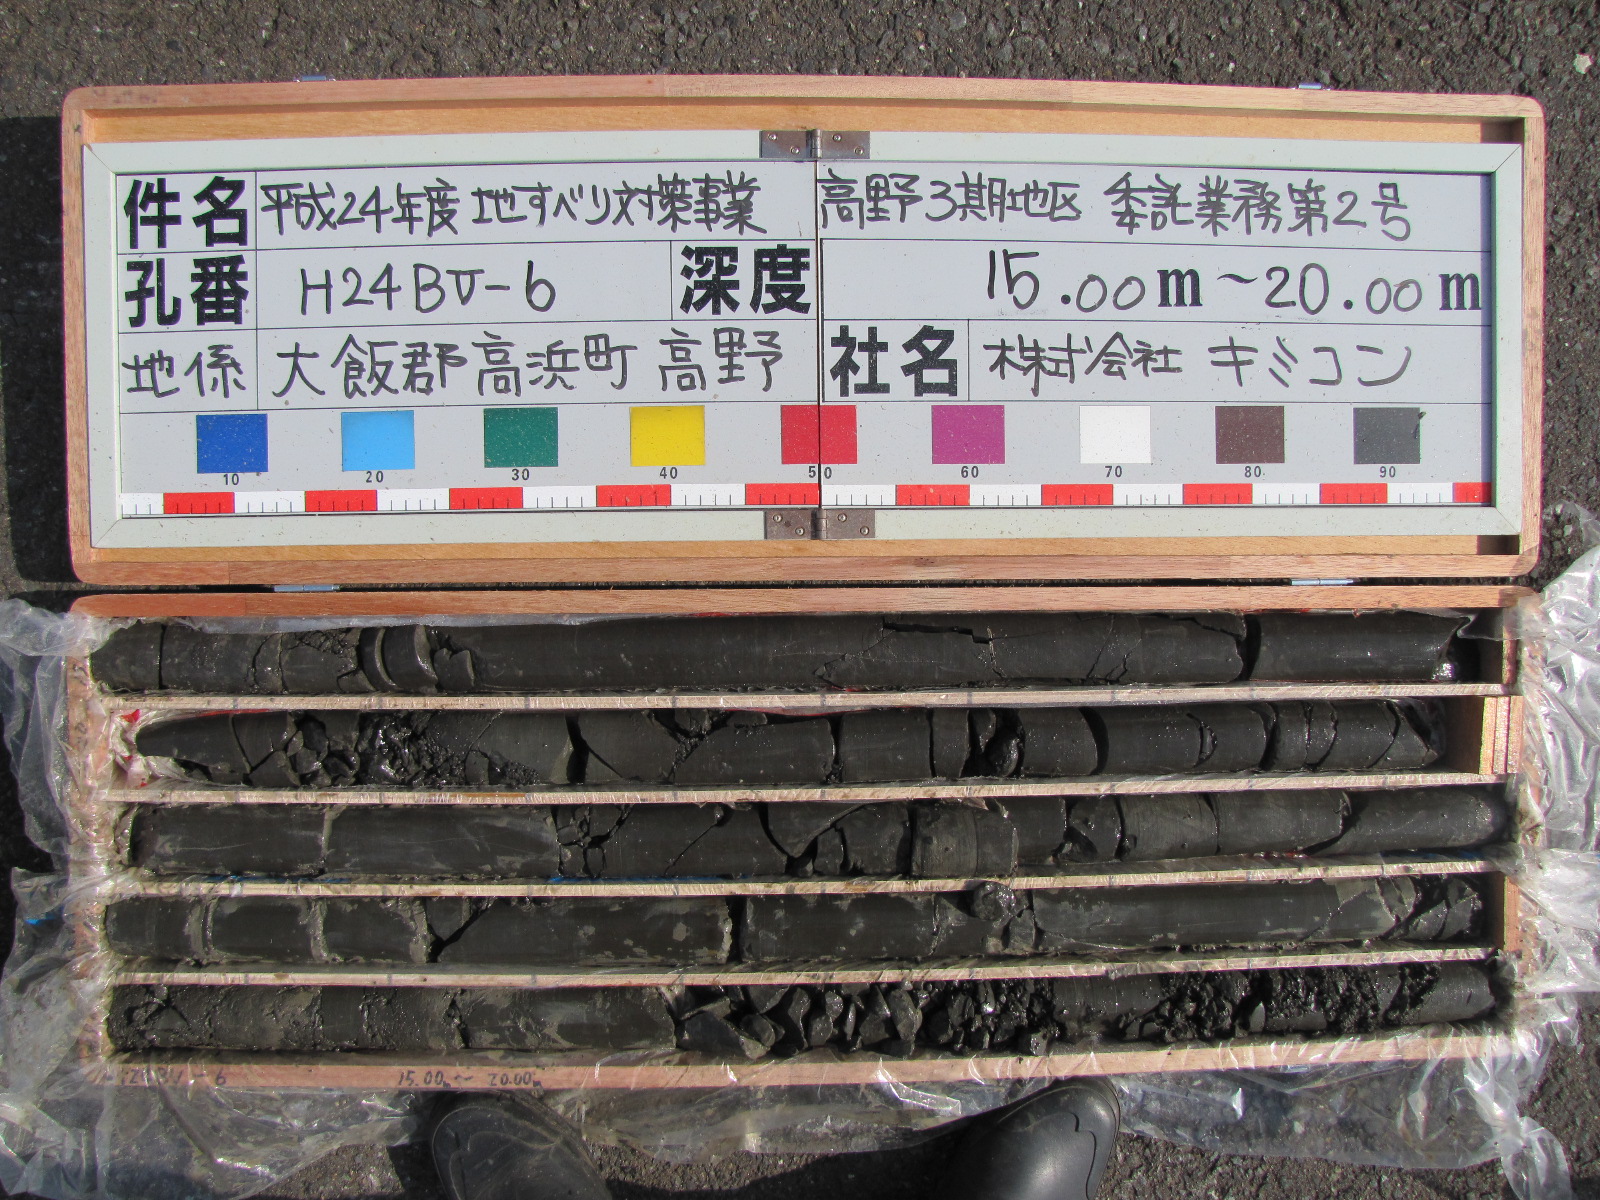 件名 平成24年度 地すべり対策事業 高野3期地区 委託業務第2号
孔番 H24BV-6 深度 15.00m～20.00m
地係 大飯郡高浜町 高野 社名 株式会社 キミコン
10 20 30 40 50 60 70 80 90
15.00m～20.00m